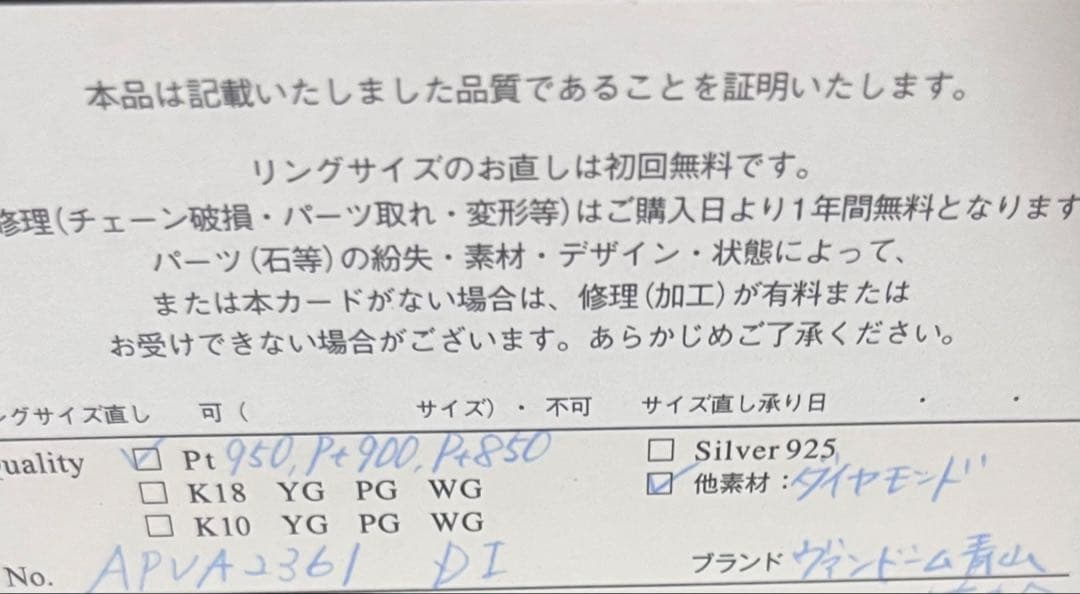 本品は記載いたしました品質であることを証明いたします。
リングサイズのお直しは初回無料です。
修理(チェーン破損・パーツ取れ・変形等)はご購入日より1年間無料となります
パーツ(石等)の紛失・素材・デザイン・状態によって、
または本カードがない場合は、修理(加工)が有料または
お受けできない場合がございます。あらかじめご了承ください。
ングサイズ直し 可( サイズ)・不可 サイズ直し承り日 ・ ・
uality ☑ Pt 950, Pt900, Pt850 □ Silver925
□ K18 YG PG WG ☑ 他素材:ダイヤモンド
□ K10 YG PG WG
No. APVA2361 DI ブランド ヴァンドーム青山